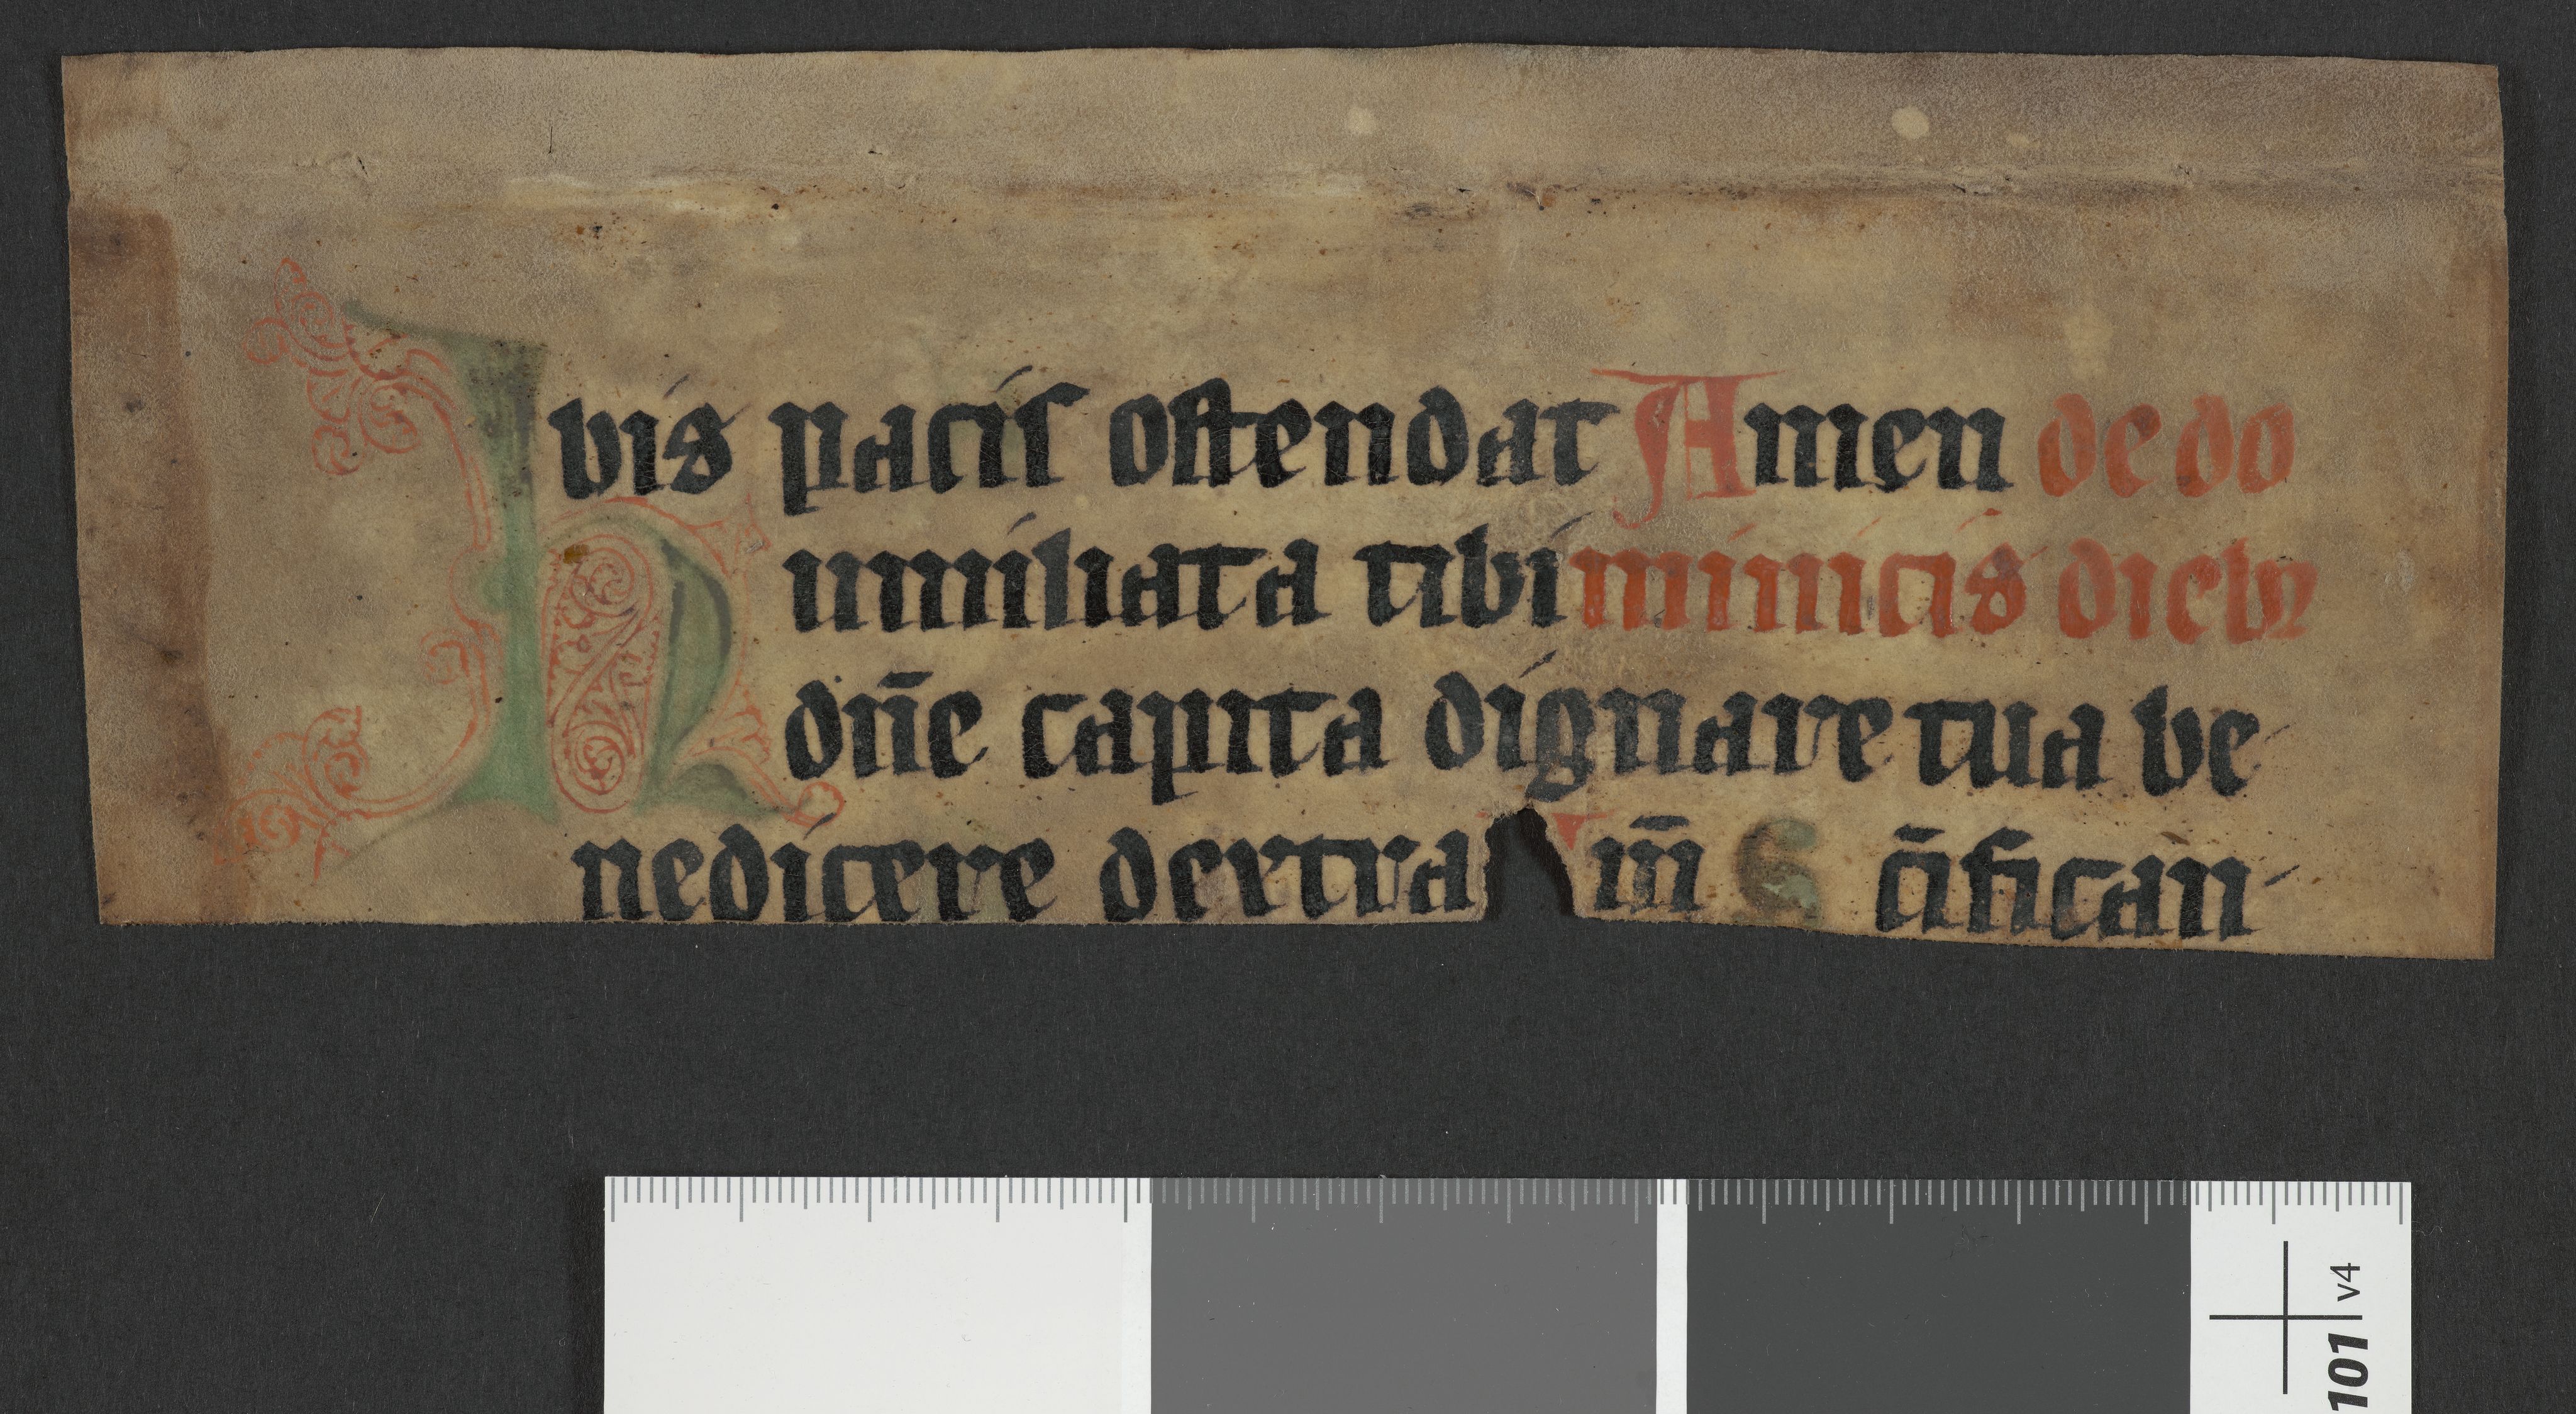 bis pacis ostendat Amen de do
Humiliata tibi minicis diebus
dn̄e capita dignare tua be
nedicere dextra im̄ S c̄ifican
101 v4